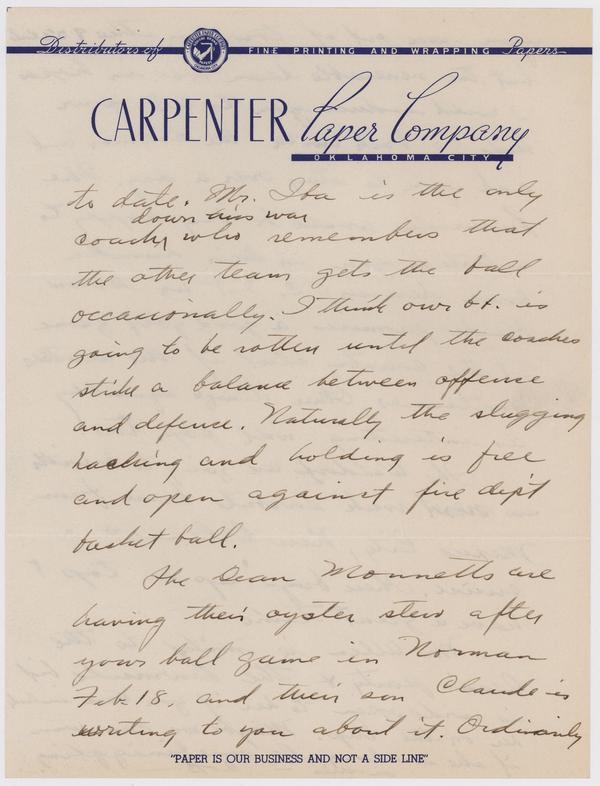 Distributors of FINE PRINTING AND WRAPPING Papers
CARPENTER Paper Company
OKLAHOMA CITY
to date. Mr. Iba is the only
down this way
coach who remembers that
the other team gets the ball
occasionally. I think our b.b. is
going to be rotten until the coaches
strike a balance between offense
and defense. Naturally the slugging
hacking and holding is free
and open against fire dep't
basket ball.
The Dean Monnetts are
having their oyster stew after
your ball game in Norman
Feb. 18, and their son Claude is
writing to you about it. Ordinarily
"PAPER IS OUR BUSINESS AND NOT A SIDE LINE"